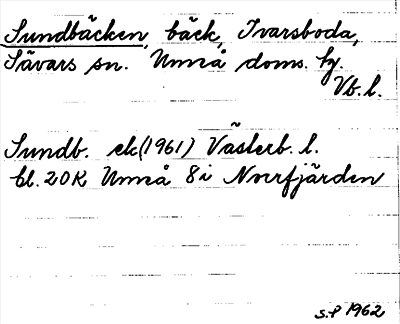 Sundbäcken, bäck, Ivarsboda,
Sävars sn. Umeå doms. hg.
Vb. l.
Sundb. ek(1961) Västerb. l.
bl. 20K Umeå 8i Norrfjärden
s.f 1962